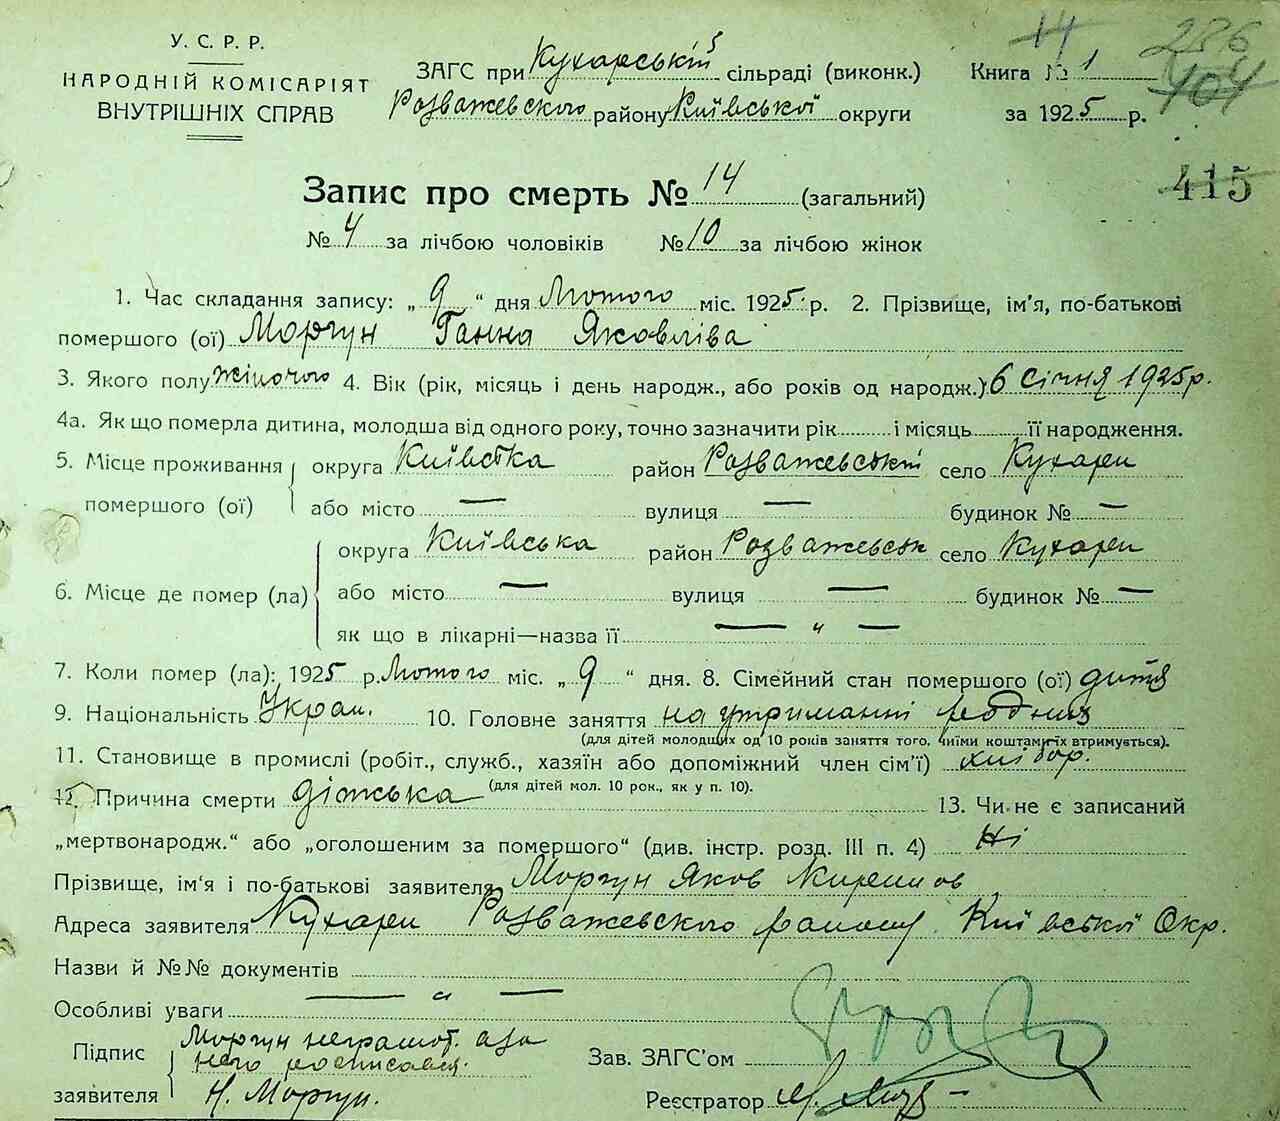 У. С. Р. Р.
НАРОДНІЙ КОМІСАРІЯТ
ВНУТРІШНІХ СПРАВ
14 286
404
ЗАГС при Кухарській сільраді (виконк.) Книга № 1
Розважевского району Київської округи за 1925 р.
415
Запис про смерть № 14 (загальний)
№ 4 за лічбою чоловіків № 10 за лічбою жінок
1. Час складання запису: „ 9 “ дня Лютого міс. 1925 р. 2. Прізвище, ім'я, по-батькові
помершого (ої) Моргун Ганна Яковліва
3. Якого полу жіночого 4. Вік (рік, місяць і день народж., або років од народж.) 6 січня 1925 р.
4а. Як що померла дитина, молодша від одного року, точно зазначити рік і місяць її народження.
5. Місце проживання округа Київська район Розважевський село Кухари
помершого (ої) або місто — вулиця — будинок № —
округа Київська район Розважевськ село Кухари
6. Місце де помер (ла) або місто — вулиця — будинок № —
як що в лікарні—назва її — „ —
7. Коли помер (ла): 1925 р. Лютого міс. „ 9 “ дня. 8. Сімейний стан помершого (ої) дитя
9. Національність Украін. 10. Головне заняття на утриманні родних
(для дітей молодщих од 10 років заняття того, чиїми коштами їх втримується).
11. Становище в промислі (робіт., служб., хазяїн або допоміжний член сім'ї) хлібор.
12. Причина смерти дітська (для дітей мол. 10 рок., як у п. 10). 13. Чи не є записаний
„мертвонародж.“ або „оголошеним за помершого“ (див. інстр. розд. III п. 4) Ні
Прізвище, ім'я і по-батькові заявителя Моргун Яков
Адреса заявителя Кухари Розважевского району Київської Окр.
Назви й №№ документів
Особливі уваги — „ —
Підпис Моргун неграмот. а за
него росписався
заявителя Н. Моргун.
Зав. ЗАГС'ом
Реєстратор